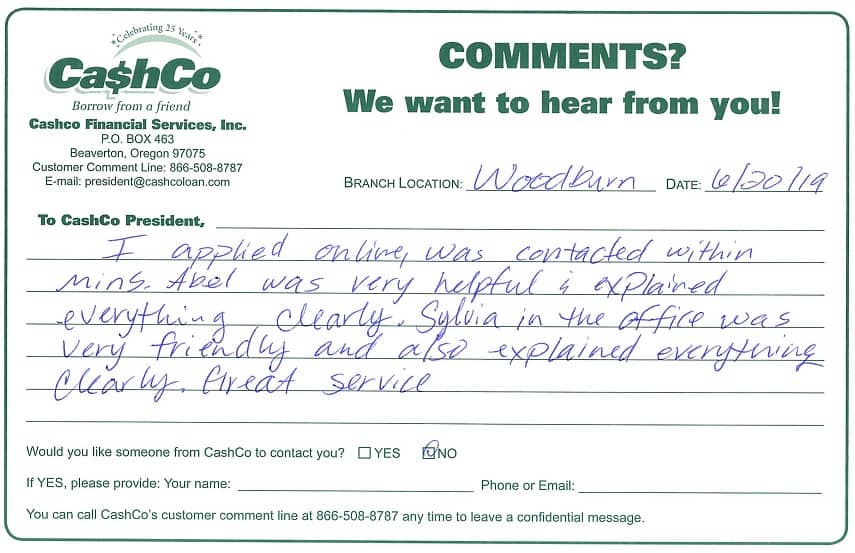 Celebrating 25 Years
Ca$hCo
Borrow from a friend
Cashco Financial Services, Inc.
P.O. BOX 463
Beaverton, Oregon 97075
Customer Comment Line: 866-508-8787
E-mail: president@cashcoloan.com
COMMENTS?
We want to hear from you!
BRANCH LOCATION: Woodburn DATE: 6/20/19
To CashCo President,
I applied online, was contacted within
mins. Abel was very helpful & explained
everything clearly. Sylvia in the office was
very friendly and also explained everything
clearly. Great service
Would you like someone from CashCo to contact you? YES NO
If YES, please provide: Your name: Phone or Email:
You can call CashCo's customer comment line at 866-508-8787 any time to leave a confidential message.